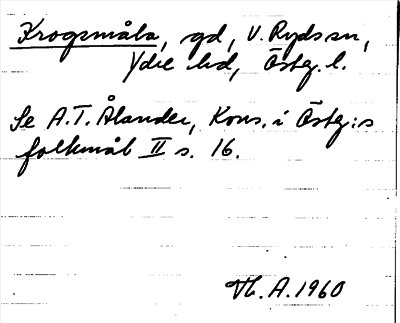 Krogsmåla, gd, V. Ryds sn,
Ydre hd, Östg. l.
Se A.T. Ålander, Kons. i Östg:s
folkmål II s. 16.
A. 1960